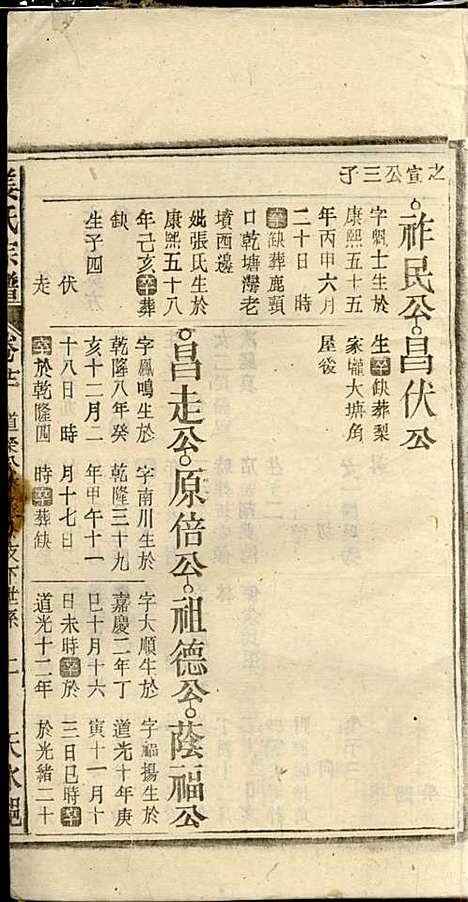 之宣公三子
祚民公
字魁士生於
康熙五十五
年丙申六月
二十日　時
卒缺葬鹿頸
口乾塘灣老
墳西邊
妣張氏生於
康熙五十八
年己亥卒葬
缺
生子四
伏
走
昌伏公
生卒缺葬梨
家壠大塘角
屋後
昌走公
字鳳鳴生於
乾隆八年癸
亥十二月二
十八日　時
卒於乾隆四
原倍公
字南川生於
乾隆三十九
年甲午十一
月十七日
時卒葬缺
祖德公
字大順生於
嘉慶二年丁
巳十月十六
日未時卒於
道光十二年
蔭福公
字福揚生於
道光十年庚
寅十一月十
三日巳時卒
於光緒二十
姜氏宗譜
卷十
支下世系
天水郡